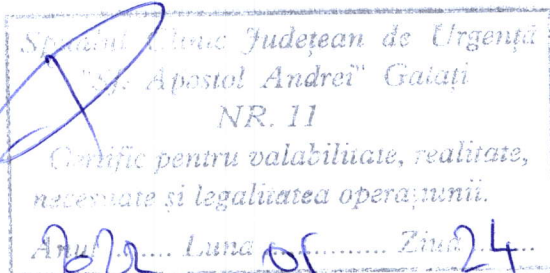 Spitalul Clinic Județean de Urgență
"Sf. Apostol Andrei" Galați
NR. 11
Certific pentru valabilitate, realitate,
necesitate și legalitatea operațiunii.
Anul 2022 Luna 05 Ziua 24